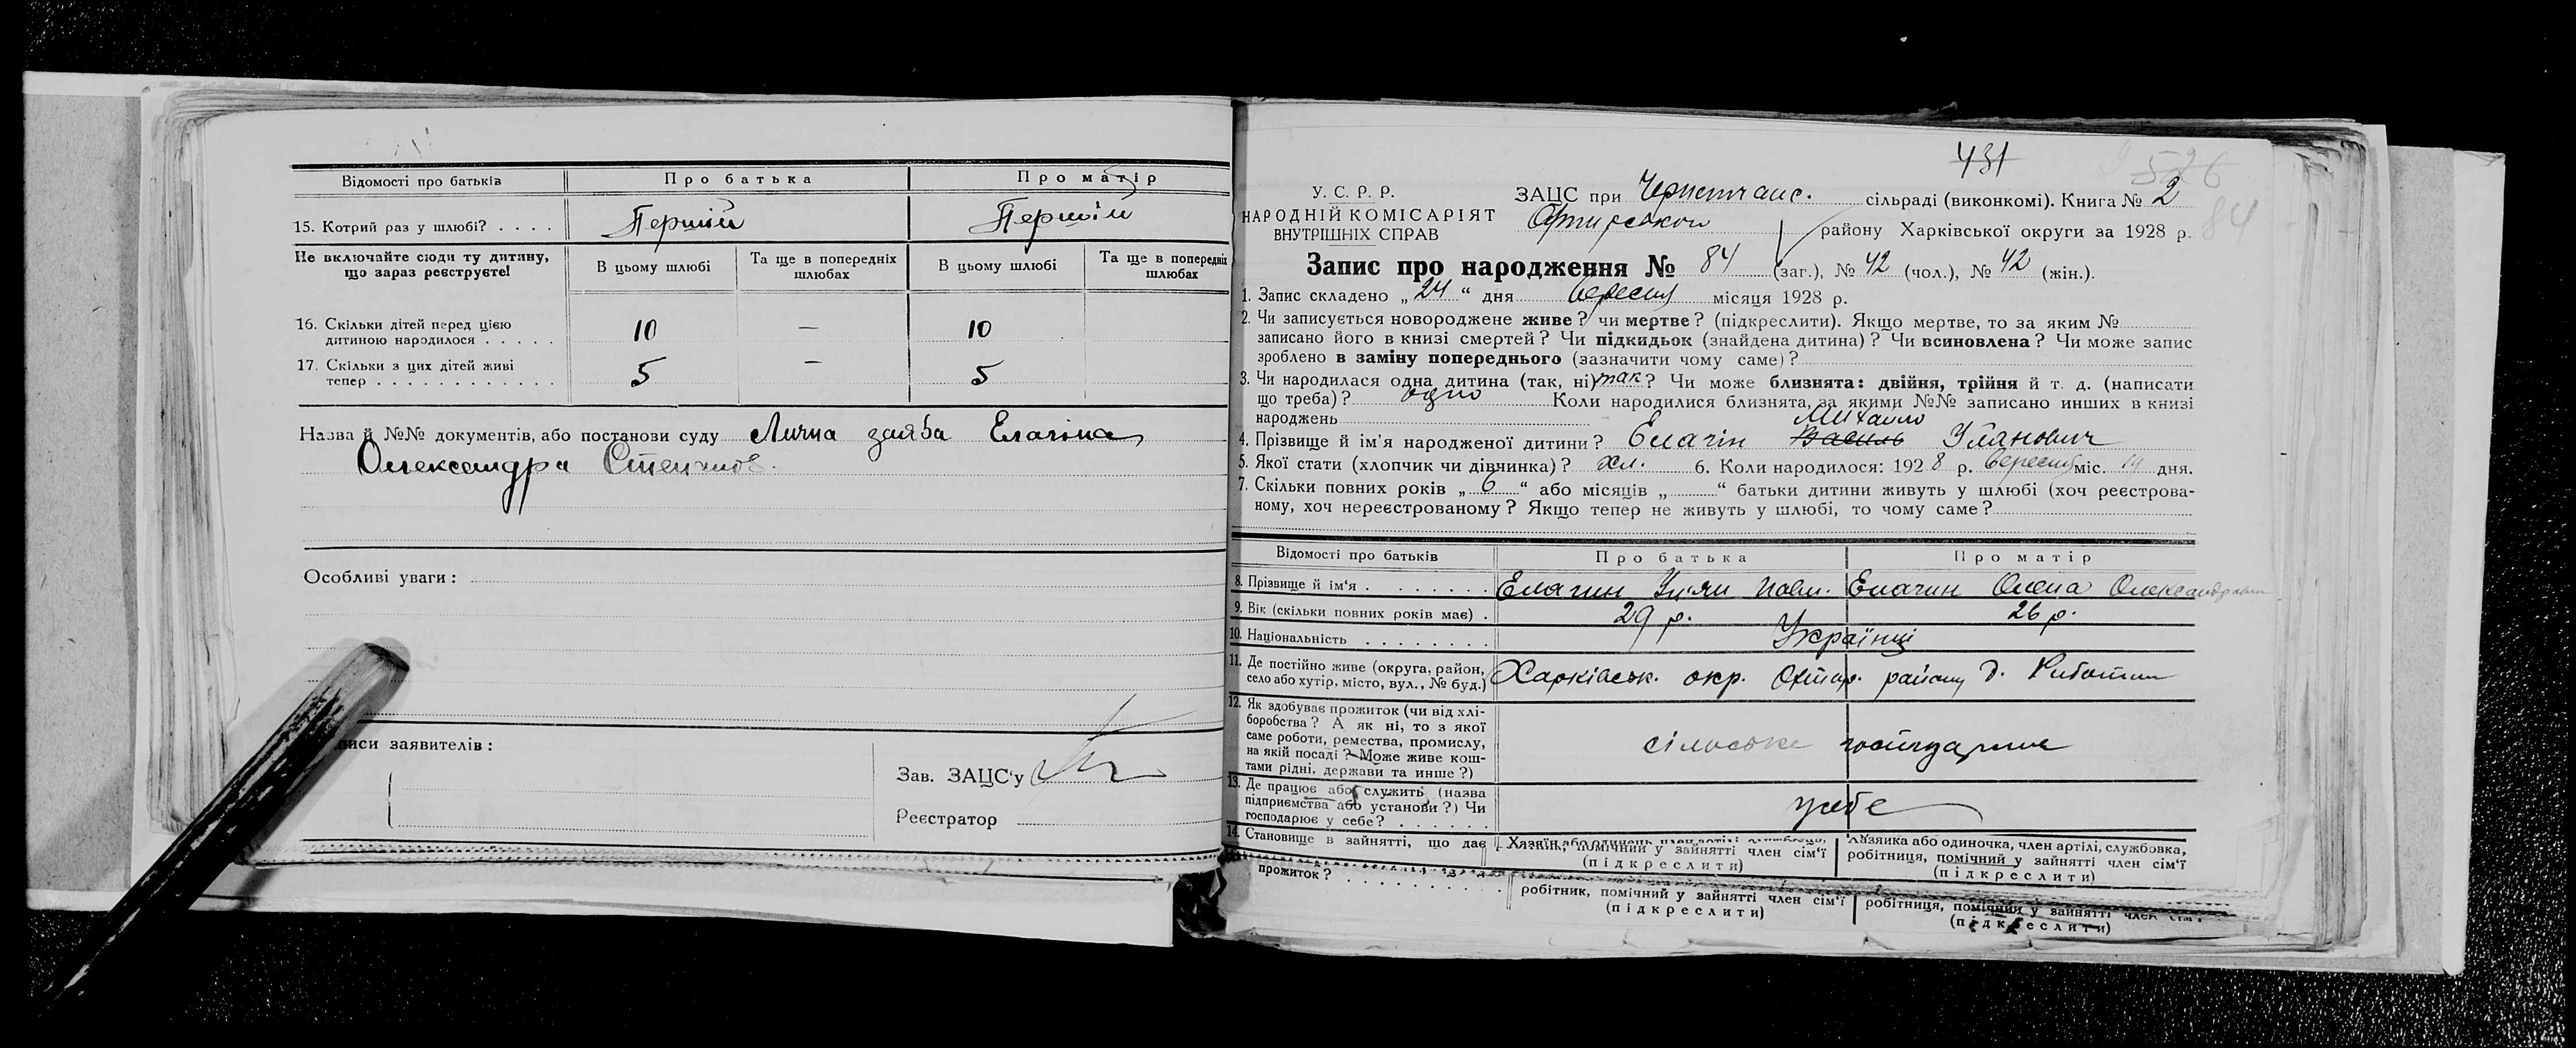 Відомості про батьків Про батька Про матір
15. Котрий раз у шлюбі? Перший Перший
Не включайте сюди ту дитину, що зараз реєструєте! В цьому шлюбі Та ще в попередніх шлюбах В цьому шлюбі Та ще в попередніх шлюбах
16. Скільки дітей перед цією
дитиною народилося 10 — 10
17. Скільки з цих дітей живі
тепер 5 — 5
Назва й №№ документів, або постанови суду Лична заява Елагіна
Олександра
Особливі уваги:
писи заявителів:
Зав. ЗАЦС'у
Реєстратор
431
526
84
У. С. Р. Р.
НАРОДНІЙ КОМІСАРІЯТ
ВНУТРІШНІХ СПРАВ
ЗАЦС при сільраді (виконкомі). Книга № 2
району Харківської округи за 1928 р.
Запис про народження № 84 (заг.), № 42 (чол.), № 42 (жін.).
1. Запис складено „ 24 “ дня вересня місяця 1928 р.
2. Чи записується новороджене живе? чи мертве? (підкреслити). Якщо мертве, то за яким №
записано його в книзі смертей? Чи підкидьок (знайдена дитина)? Чи всиновлена? Чи може запис
зроблено в заміну попереднього (зазначити чому саме)?
3. Чи народилася одна дитина (так, ні) так? Чи може близнята: двійня, трійня й т. д. (написати
що треба)? одно Коли народилися близнята, за якими №№ записано инших в книзі
народжень
Михайло
4. Прізвище й ім'я народженої дитини? Елагін Василь Улянович
5. Якої стати (хлопчик чи дівчинка)? хл. 6. Коли народилося: 1928 р. вересня міс. дня.
7. Скільки повних років „ 6 “ або місяців „ “ батьки дитини живуть у шлюбі (хоч реєстрова-
ному, хоч нереєстрованому? Якщо тепер не живуть у шлюбі, то чому саме?
Відомості про батьків Про батька Про матір
8. Прізвище й ім'я Елагин Улян Елагин Олена Олександровна
9. Вік (скільки повних років має) 29 р. 26 р.
10. Національність Українці
11. Де постійно живе (округа, район,
село або хутір, місто, вул., № буд.) Харківськ. окр. Охтир. району
12. Як здобуває прожиток (чи від хлі-
боробства? А як ні, то з якої
саме роботи, ремества, промислу,
на якій посаді? Може живе кош-
тами рідні, держави та инше?) сільське
13. Де працює або служить (назва
підприємства або установи?) Чи
господарює у себе? у себе
14. Становище в зайнятті, що дає
помічний у зайнятті член сім'ї
(підкреслити)
Хазяйка або одиночка, член артілі, службовка,
робітниця, помічний у зайнятті член сім'ї
(підкреслити)
прожиток?
робітник, помічний у зайнятті член сім'ї
(підкреслити)
робітниця, помічний у зайнятті член сім'ї
(підкреслити)